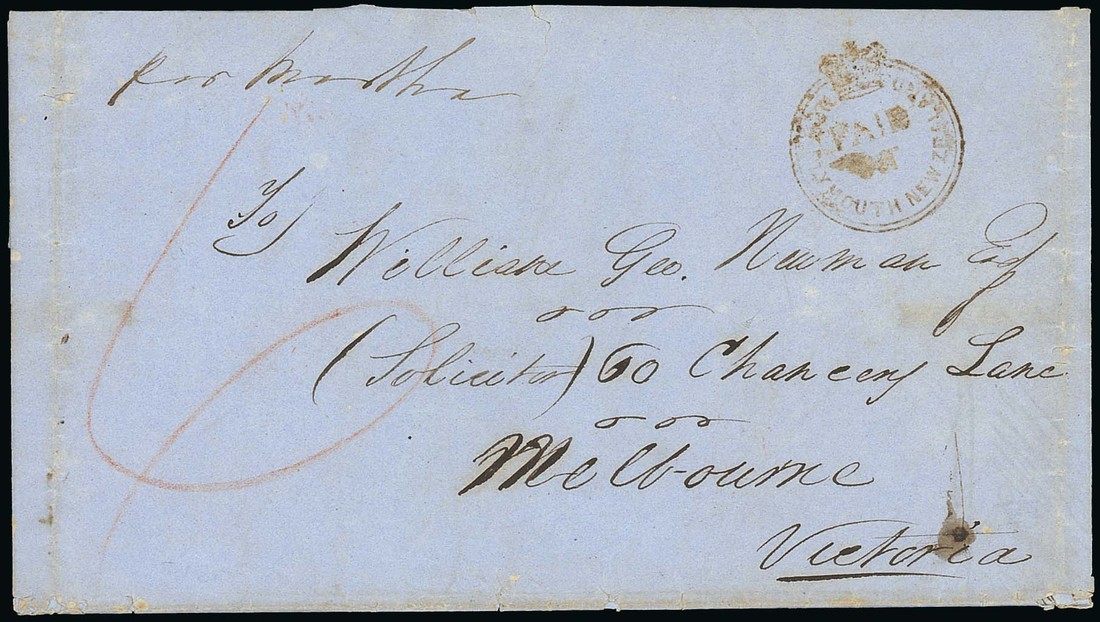 per Martha
PAID
NEW PLYMOUTH NEW ZEALAND
6
To
William Geo. Newman Esq
(Solicitor) 60 Chancery Lane
Melbourne
Victoria